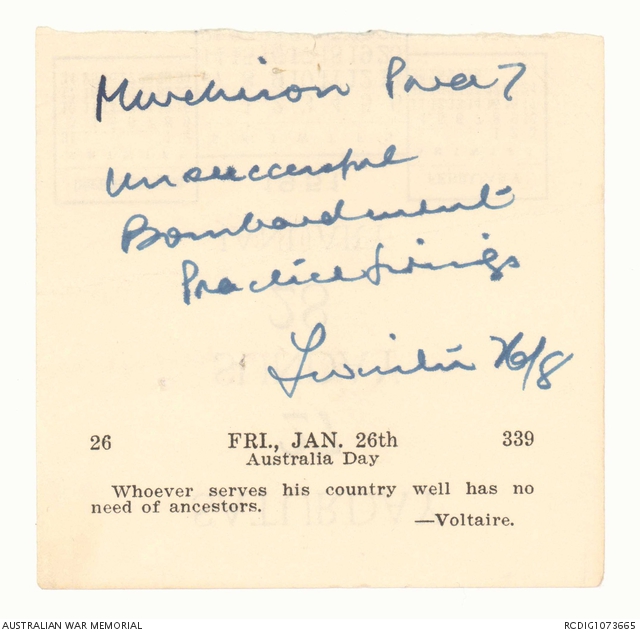 Murchison Para 7
Unsuccessful
Bombardment
Practice firings
26 FRI., JAN. 26th 339
Australia Day
Whoever serves his country well has no
need of ancestors.
—Voltaire.
AUSTRALIAN WAR MEMORIAL RCDIG1073665